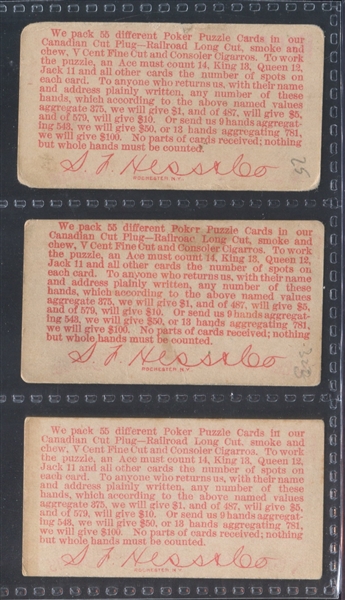 We pack 55 different Poker Puzzle Cards in our
Canadian Cut Plug—Railroad Long Cut, smoke and
chew, V Cent Fine Cut and Consoler Cigarros. To work
the puzzle, an Ace must count 14, King 13, Queen 12,
Jack 11 and all other cards the number of spots on
each card. To anyone who returns us, with their name
and address plainly written, any number of these
hands, which according to the above named values
aggregate 375, we will give $1, and of 487, will give $5,
and of 579, will give $10. Or send us 9 hands aggregat-
ing 543, we will give $50, or 13 hands aggregating 781,
we will give $100. No parts of cards received; nothing
but whole hands must be counted.
S. F. Hess & Co
ROCHESTER, N.Y.
We pack 55 different Poker Puzzle Cards in our
Canadian Cut Plug—Railroad Long Cut, smoke and
chew, V Cent Fine Cut and Consoler Cigarros. To work
the puzzle, an Ace must count 14, King 13, Queen 12,
Jack 11 and all other cards the number of spots on
each card. To anyone who returns us, with their name
and address plainly written, any number of these
hands, which according to the above named values
aggregate 375, we will give $1, and of 487, will give $5,
and of 579, will give $10. Or send us 9 hands aggregat-
ing 543, we will give $50, or 13 hands aggregating 781,
we will give $100. No parts of cards received; nothing
but whole hands must be counted.
S. F. Hess & Co
ROCHESTER, N.Y.
We pack 55 different Poker Puzzle Cards in our
Canadian Cut Plug—Railroad Long Cut, smoke and
chew, V Cent Fine Cut and Consoler Cigarros. To work
the puzzle, an Ace must count 14, King 13, Queen 12,
Jack 11 and all other cards the number of spots on
each card. To anyone who returns us, with their name
and address plainly written, any number of these
hands, which according to the above named values
aggregate 375, we will give $1, and of 487, will give $5,
and of 579, will give $10. Or send us 9 hands aggregat-
ing 543, we will give $50, or 13 hands aggregating 781,
we will give $100. No parts of cards received; nothing
but whole hands must be counted.
S. F. Hess & Co
ROCHESTER, N.Y.